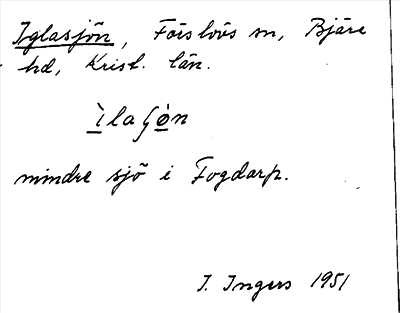 Iglasjön, Förslövs sn, Bjäre
hd, Krist. län.
ìlaʃòn
mindre sjö i Fogdarp.
I. Ingers 1951